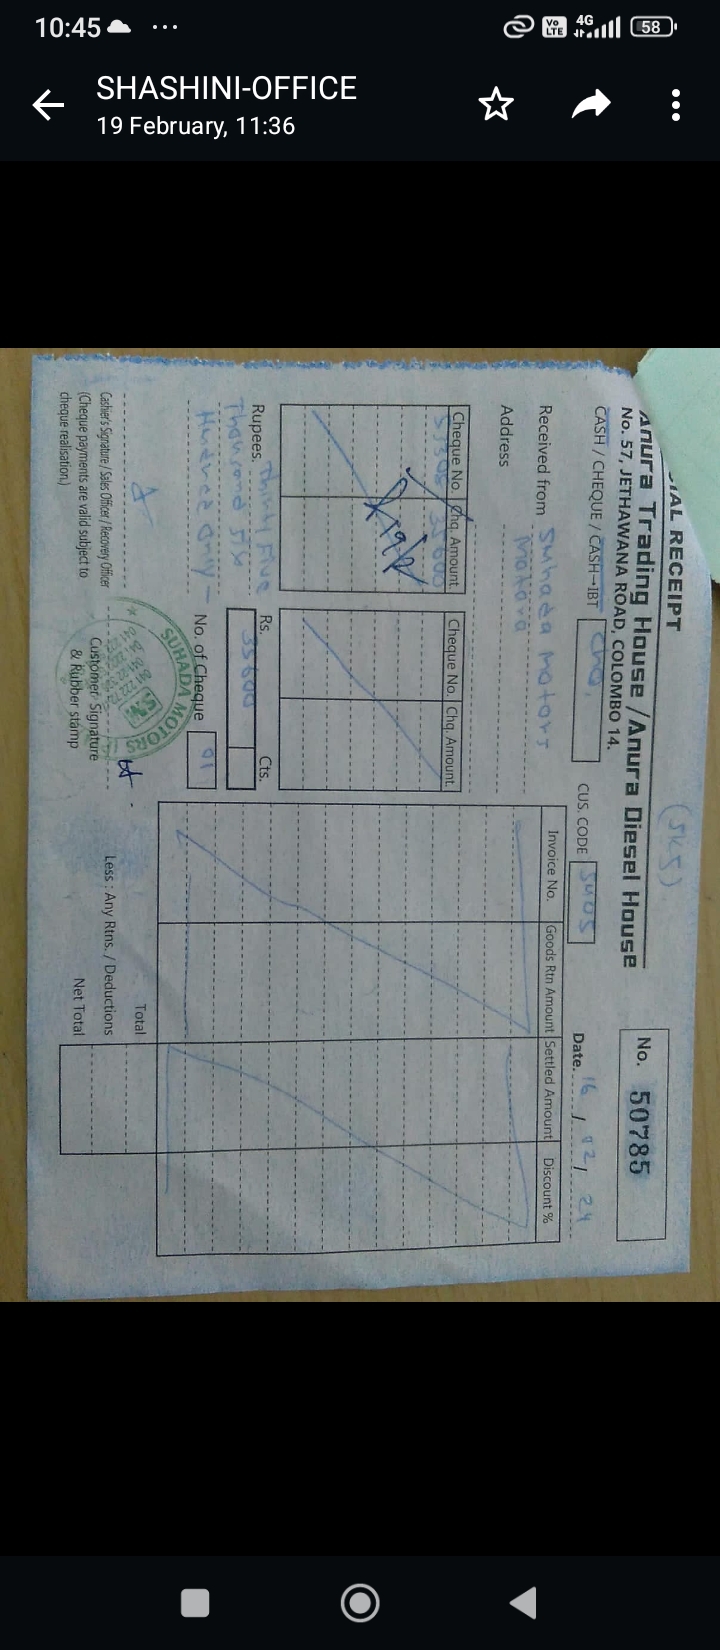 10:45
Vo LTE
4G
58
SHASHINI-OFFICE
19 February, 11:36
IAL RECEIPT
(SKS)
Anura Trading House / Anura Diesel House
No. 57, JETHAWANA ROAD, COLOMBO 14.
No. 50785
CASH / CHEQUE / CASH→IBT
CUS. CODE
Date. 16 / 02 / 24
Received from Suhada Motors
Matara
Address
Cheque No. Chq. Amount.
35600
Cheque No. Chq. Amount.
Invoice No. Goods Rtn Amount Settled Amount Discount %
Rupees. Thirty Five
Thousand Six
Hundred Only
Rs. 35600 Cts.
No. of Cheque 01
Total
Less : Any Rtns. / Deductions
Net Total
Cashier's Signature / Sales Officer / Recovery Officer
(Cheque payments are valid subject to
cheque realisation.)
SUHADA MOTORS
Customer Signature
& Rubber stamp